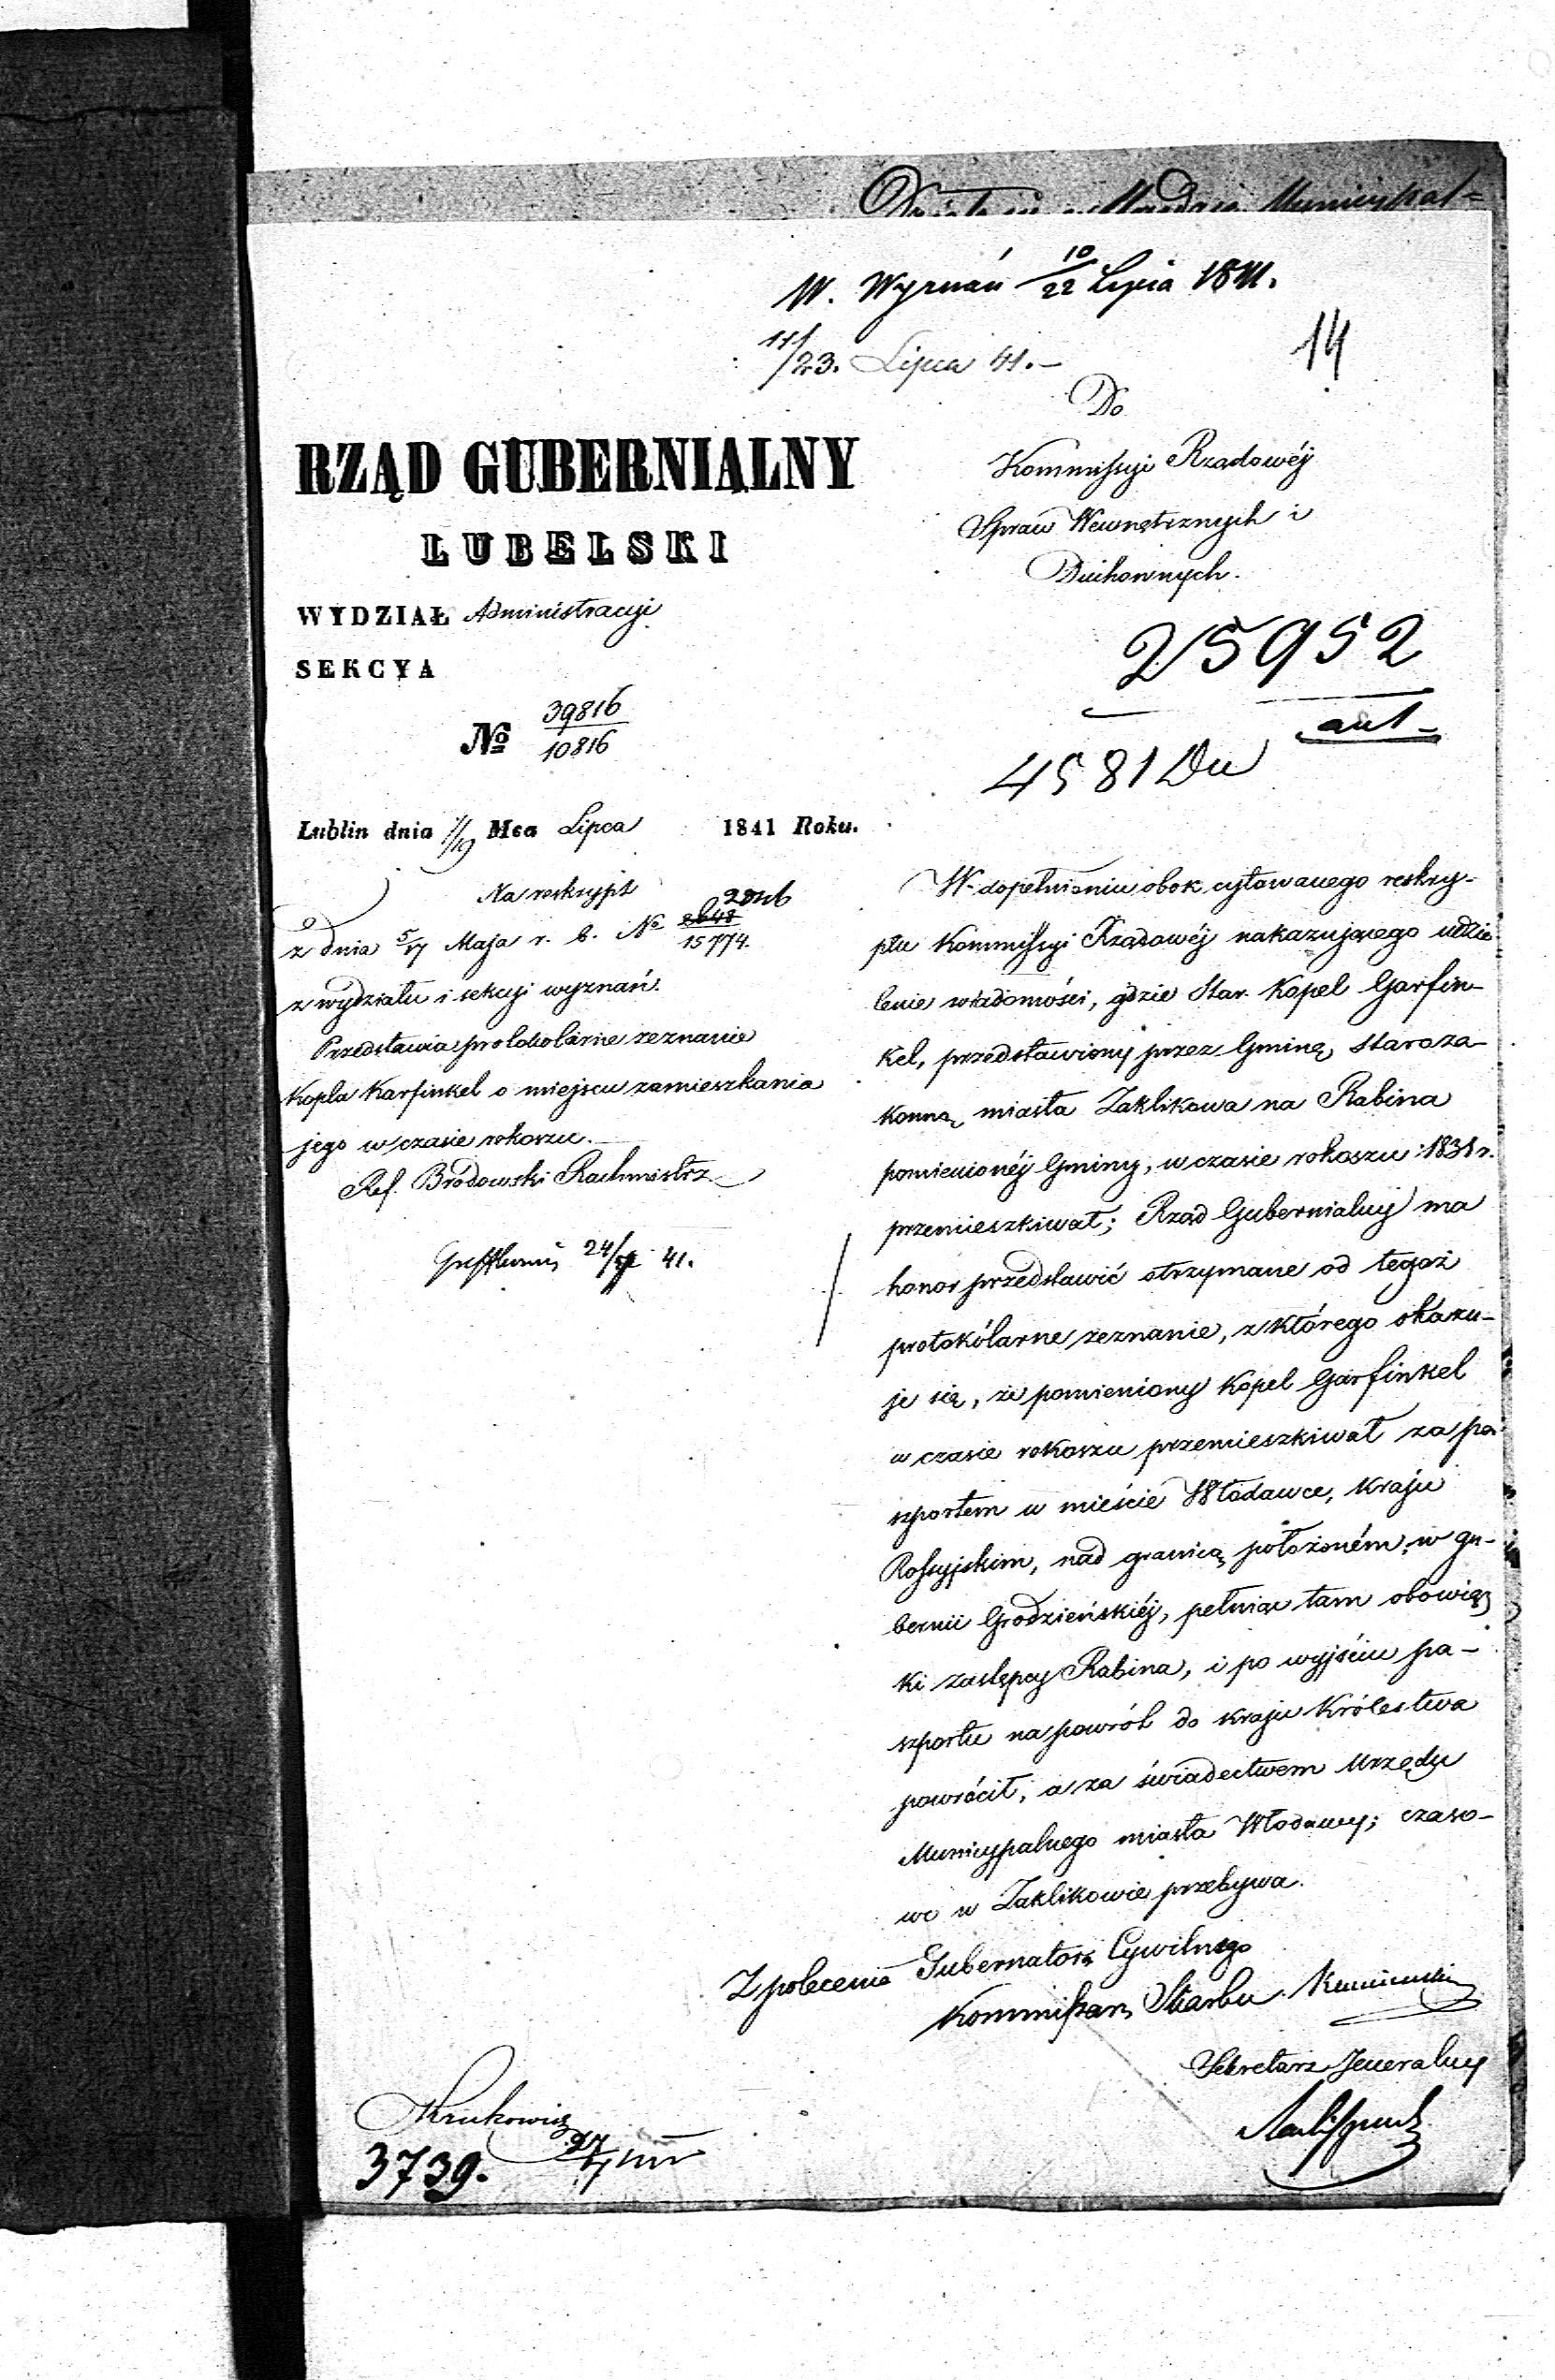 W. Wyznań 10/22 Lipca 1841.
11/23. Lipca 41.-
14
Do
Kommissyi Rządowéj
Spraw Wewnętrznych i
Duchownych.
RZĄD GUBERNIALNY
LUBELSKI
WYDZIAŁ Administracyi
SEKCYA
25952
ant-
№ 39816/10816
4581 Du
Lublin dnia 7/19 Mca Lipca 1841 Roku.
Na reskrypt
z dnia 5/17 Maja r. b. No 15774.
z wydziału i sekcyi wyznań.
Przedstawia protokolarne zeznanie
Kopla Karfinkel o miejscu zamieszkania
jego w czasie rokoszu.
Ref. Brodowski Rachmistrz
41.
W dopełnieniu obok cytowanego reskry-
ptu Kommissyi Rządowéj nakazującego udzie
lenie wiadomości, gdzie Star. Kopel Garfin-
kel, przedstawiony przez Gminę Staroza-
konną miasta Zaklikowa na Rabina
pomienionéj Gminy, w czasie rokoszu 1831 r.
przemieszkiwał; Rząd Gubernialny ma
honor przedstawić otrzymane od tegoż
protokólarne zeznanie, z którego okazu-
je się, że pomieniony Kopel Garfinkel
w czasie rokoszu przemieszkiwał za pa-
szportem w mieście Włodawce, kraju
Rossyjskim, nad granicą położoném, w gu-
bernii Grodzieńskiéj, pełniąc tam obowiąz
ki zastępcy Rabina, i po wyjściu pa-
szportu na powrót do kraju Królestwa
powrócił, a za świadectwem Urzędu
Municypalnego miasta Włodawy; czaso-
wo w Zaklikowie przebywa.
Z polecenia Gubernatora Cywilnego
Kommissarz Skarbu
Sekretarz Jeneralny
3739.